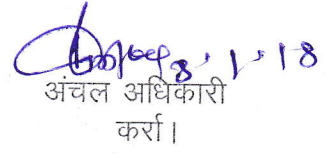 8.1.18
अंचल अधिकारी
कर्रा।